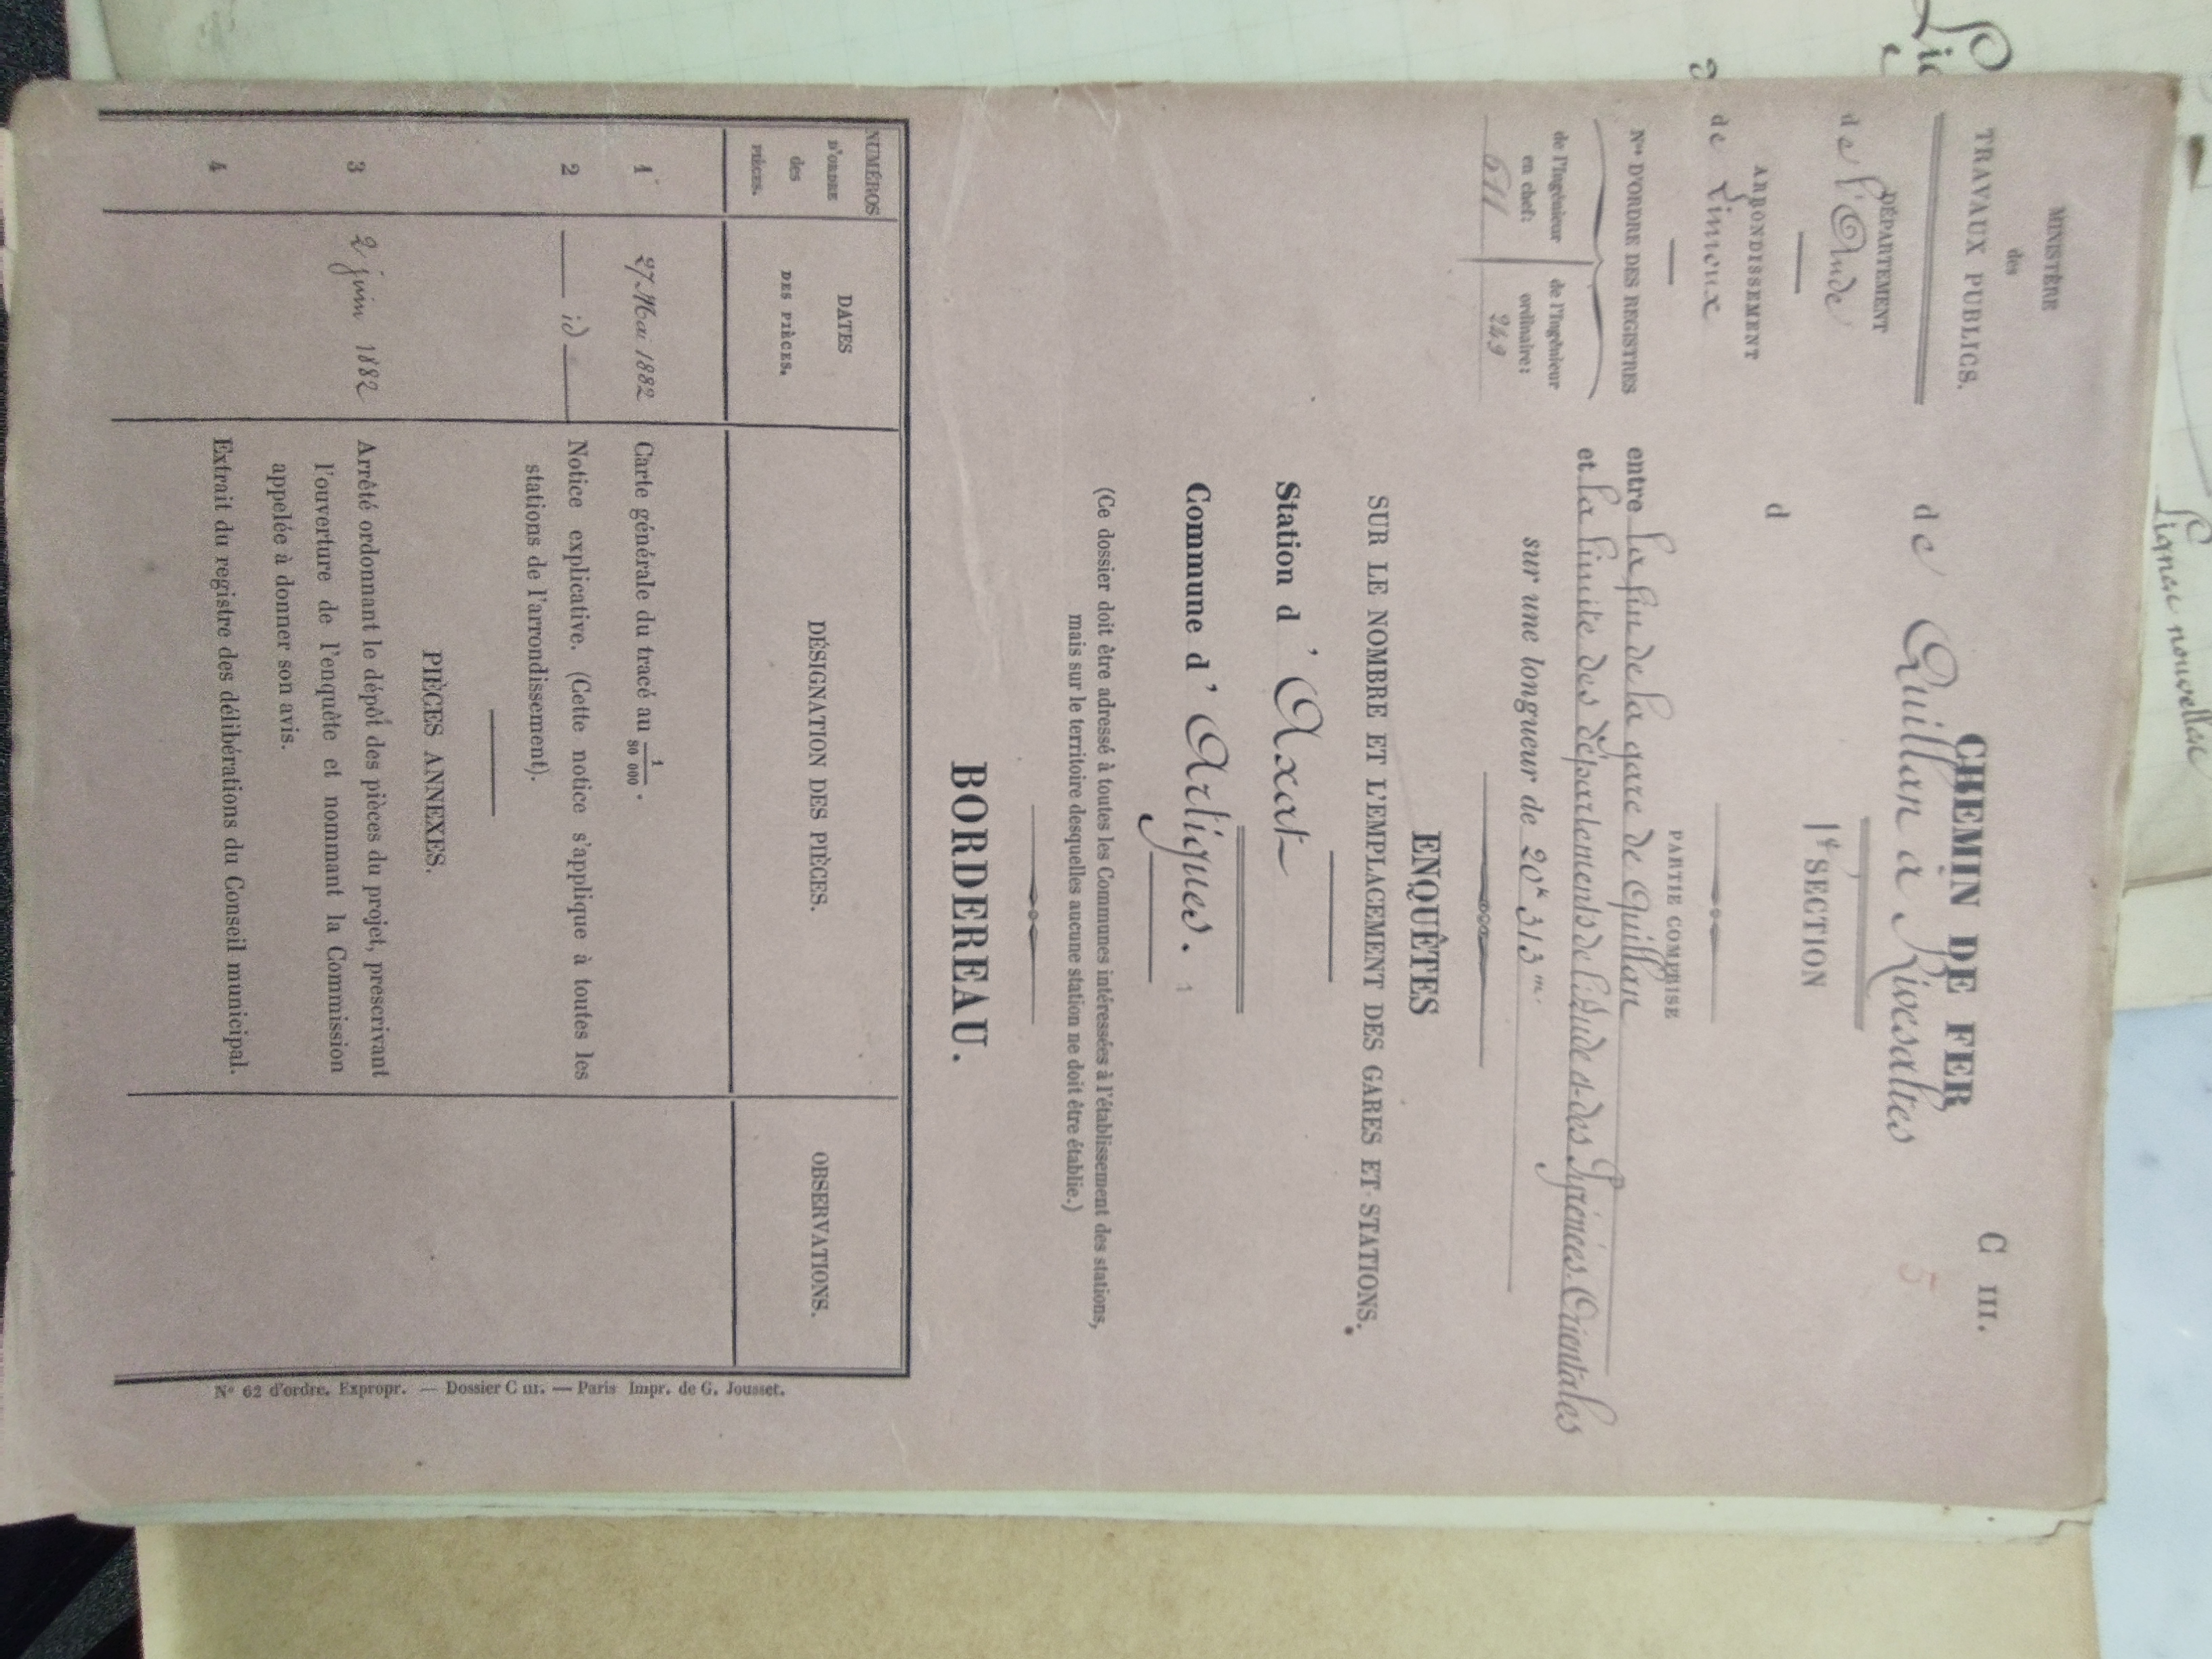 Lignes nouvelles
MINISTÈRE
des
TRAVAUX PUBLICS.
DÉPARTEMENT
de l'Aude
ARRONDISSEMENT
de Limoux
Nos D'ORDRE DES REGISTRES
de l'Ingénieur
en chef:
611
de l'Ingénieur
ordinaire:
249
C III.
5
CHEMIN DE FER
de Quillan à Rivesaltes
1e SECTION
d
PARTIE COMPRISE
entre la fin de la gare de Quillan
et la limite des départements de l'Aude et des Pyrénées-Orientales
sur une longueur de 20k 313m
ENQUÊTES
SUR LE NOMBRE ET L'EMPLACEMENT DES GARES ET STATIONS.
Station d'Axat
Commune d'Artigues.
(Ce dossier doit être adressé à toutes les Communes intéressées à l'établissement des stations,
mais sur le territoire desquelles aucune station ne doit être établie.)
BORDEREAU.
NUMÉROS
D'ORDRE
des
PIÈCES.
DATES
DES PIÈCES.
DÉSIGNATION DES PIÈCES.
OBSERVATIONS.
1 27 Mai 1882 Carte générale du tracé au 1/80 000.
2 id Notice explicative. (Cette notice s'applique à toutes les
stations de l'arrondissement).
PIÈCES ANNEXES.
3 2 juin 1882 Arrêté ordonnant le dépôt des pièces du projet, prescrivant
l'ouverture de l'enquête et nommant la Commission
appelée à donner son avis.
4 Extrait du registre des délibérations du Conseil municipal.
No 62 d'ordre. Expropr. — Dossier C III. — Paris Impr. de G. Jousset.